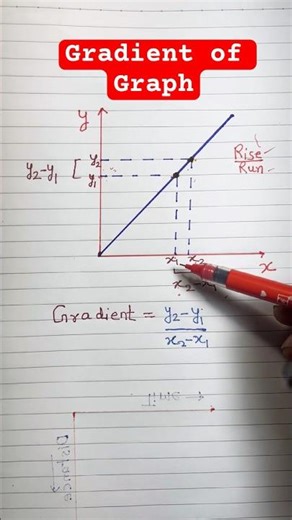 Gradient of
Graph
y
y₂
y₂-y₁ [
y₁
Rise
Run
x₁ x₂
x
x₂-x₁
Gradient = y₂-y₁
x₂-x₁